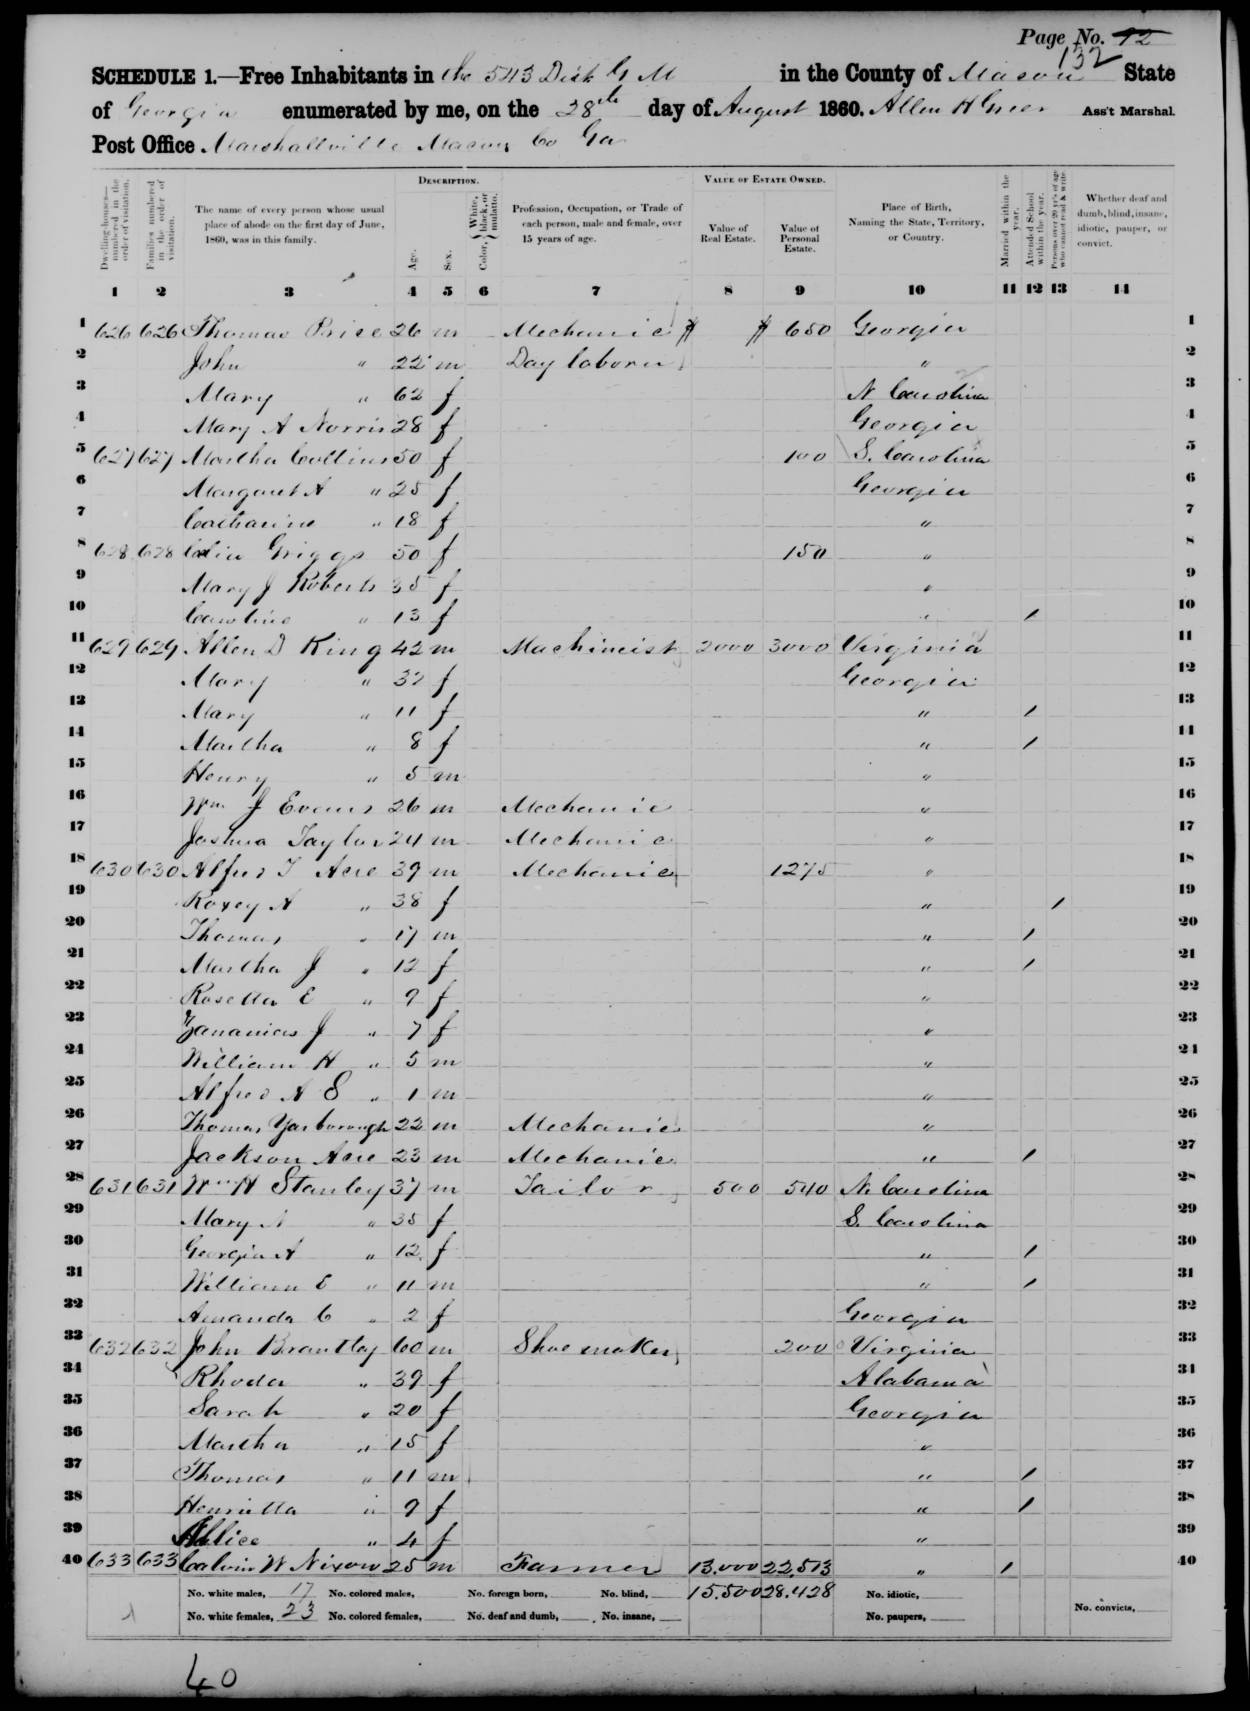 Page No. 92
132
SCHEDULE 1.—Free Inhabitants in the 543 Dist G M in the County of Macon State
of Georgia enumerated by me, on the 28th day of August 1860. Allen H Greer Ass't Marshal.
Post Office Marshallville Macon Co Ga
DESCRIPTION. VALUE OF ESTATE OWNED.
Dwelling-houses—numbered in the order of visitation.
Families numbered in the order of visitation.
The name of every person whose usual place of abode on the first day of June, 1860, was in this family.
Age.
Sex.
Color, { White, black, or mulatto.
Profession, Occupation, or Trade of each person, male and female, over 15 years of age.
Value of Real Estate.
Value of Personal Estate.
Place of Birth, Naming the State, Territory, or Country.
Married within the year.
Attended School within the year.
Persons over 20 y'rs of age who cannot read & write.
Whether deaf and dumb, blind, insane, idiotic, pauper, or convict.
1 2 3 4 5 6 7 8 9 10 11 12 13 14
1 626 626 Thomas Price 26 m Mechanic $ $ 650 Georgia 1
2 John " 22 m Day laborer " 2
3 Mary " 62 f N Carolina 3
4 Mary A Norris 28 f Georgia 4
5 627 627 Martha Collins 50 f 100 S. Carolina 5
6 Margaret A " 25 f Georgia 6
7 Catharine " 18 f " 7
8 628 628 Griggs 50 f 150 " 8
9 Mary J Roberts 35 f " 9
10 Caroline " 13 f " / 10
11 629 629 Allen D King 42 m Machineist 2000 3000 Virginia 11
12 Mary " 32 f Georgia 12
13 Mary " 11 f " / 13
14 Martha " 8 f " / 14
15 Henry " 5 m " 15
16 Wm J Evans 26 m Mechanic " 16
17 Joshua Taylor 24 m Mechanic " 17
18 630 630 Alfred T Acre 39 m Mechanic 1275 " 18
19 Roxey A " 38 f " / 19
20 Thomas " 17 m " / 20
21 Martha J " 12 f " / 21
22 Rosetta E " 9 f " 22
23 Zananias J " 7 f " 23
24 William H " 5 m " 24
25 Alfred A S " 1 m " 25
26 Thomas Yarborough 22 m Mechanic " 26
27 Jackson Acre 23 m Mechanic " / 27
28 631 631 Wm H Stanley 37 m Tailor 500 540 N. Carolina 28
29 Mary A " 35 f S. Carolina 29
30 Georgia A " 12 f " / 30
31 William E " 11 m " / 31
32 Amanda C " 2 f Georgia 32
33 632 632 John Brantley 60 m Shoe maker 200 Virginia 33
34 Rhoda " 39 f Alabama 34
35 Sarah " 20 f Georgia 35
36 Martha " 15 f " 36
37 Thomas " 11 m " / 37
38 Henrietta " 9 f " / 38
39 Allice " 4 f " 39
40 633 633 Calvin W Nixon 25 m Farmer 13.000 22,513 " / 40
No. white males, 17 No. colored males, No. foreign born, No. blind, 15.500 28.428 No. idiotic,
No. white females, 23 No. colored females, No. deaf and dumb, No. insane, No. paupers, No. convicts,
40